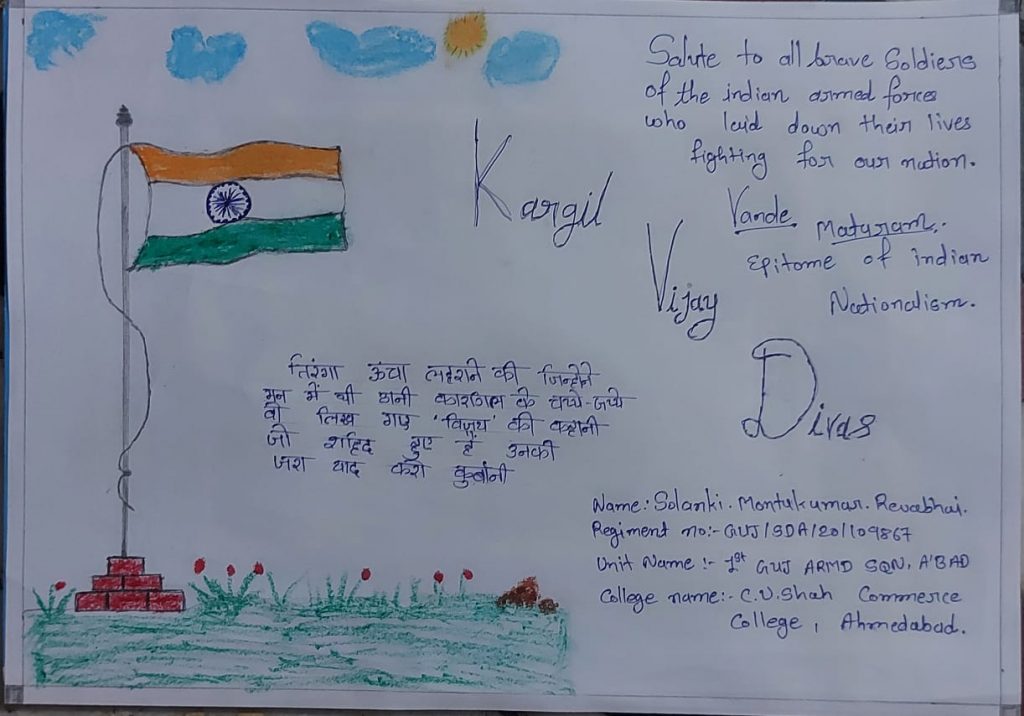 Salute to all brave Soldiers
of the indian armed forces
who laid down their lives
fighting for our nation.
Vande Mataram..
Epitome of indian
Nationalism.
Kargil
Vijay
Divas
तिरंगा ऊंचा लहराने की जिन्होने
मन में थी ठानी कारगिल के चप्पे-चप्पे
वो लिख गए 'विजय' की कहानी
जो शहिद हुए हैं उनकी
जरा याद करो कुर्बानी
Name: Solanki. Montukumar. Revabhai.
Regiment no:- GUJ/SDA/20/109867
Unit Name :- 1st GUJ ARMD SQN, A'BAD
College name:- C.U.Shah Commerce
College, Ahmedabad.